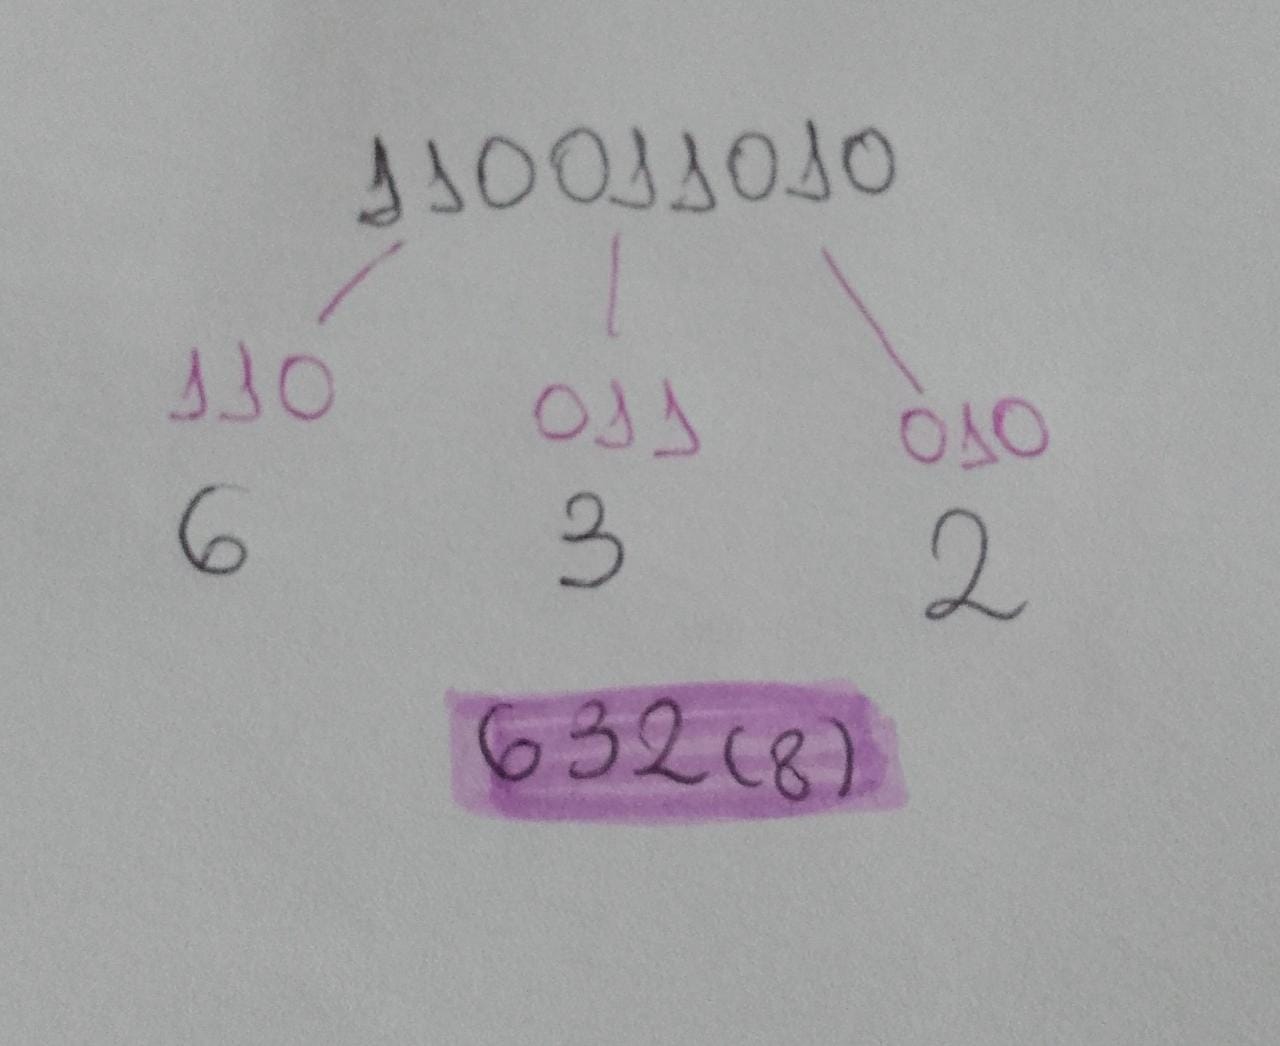 110011010
110 011 010
6 3 2
632(8)